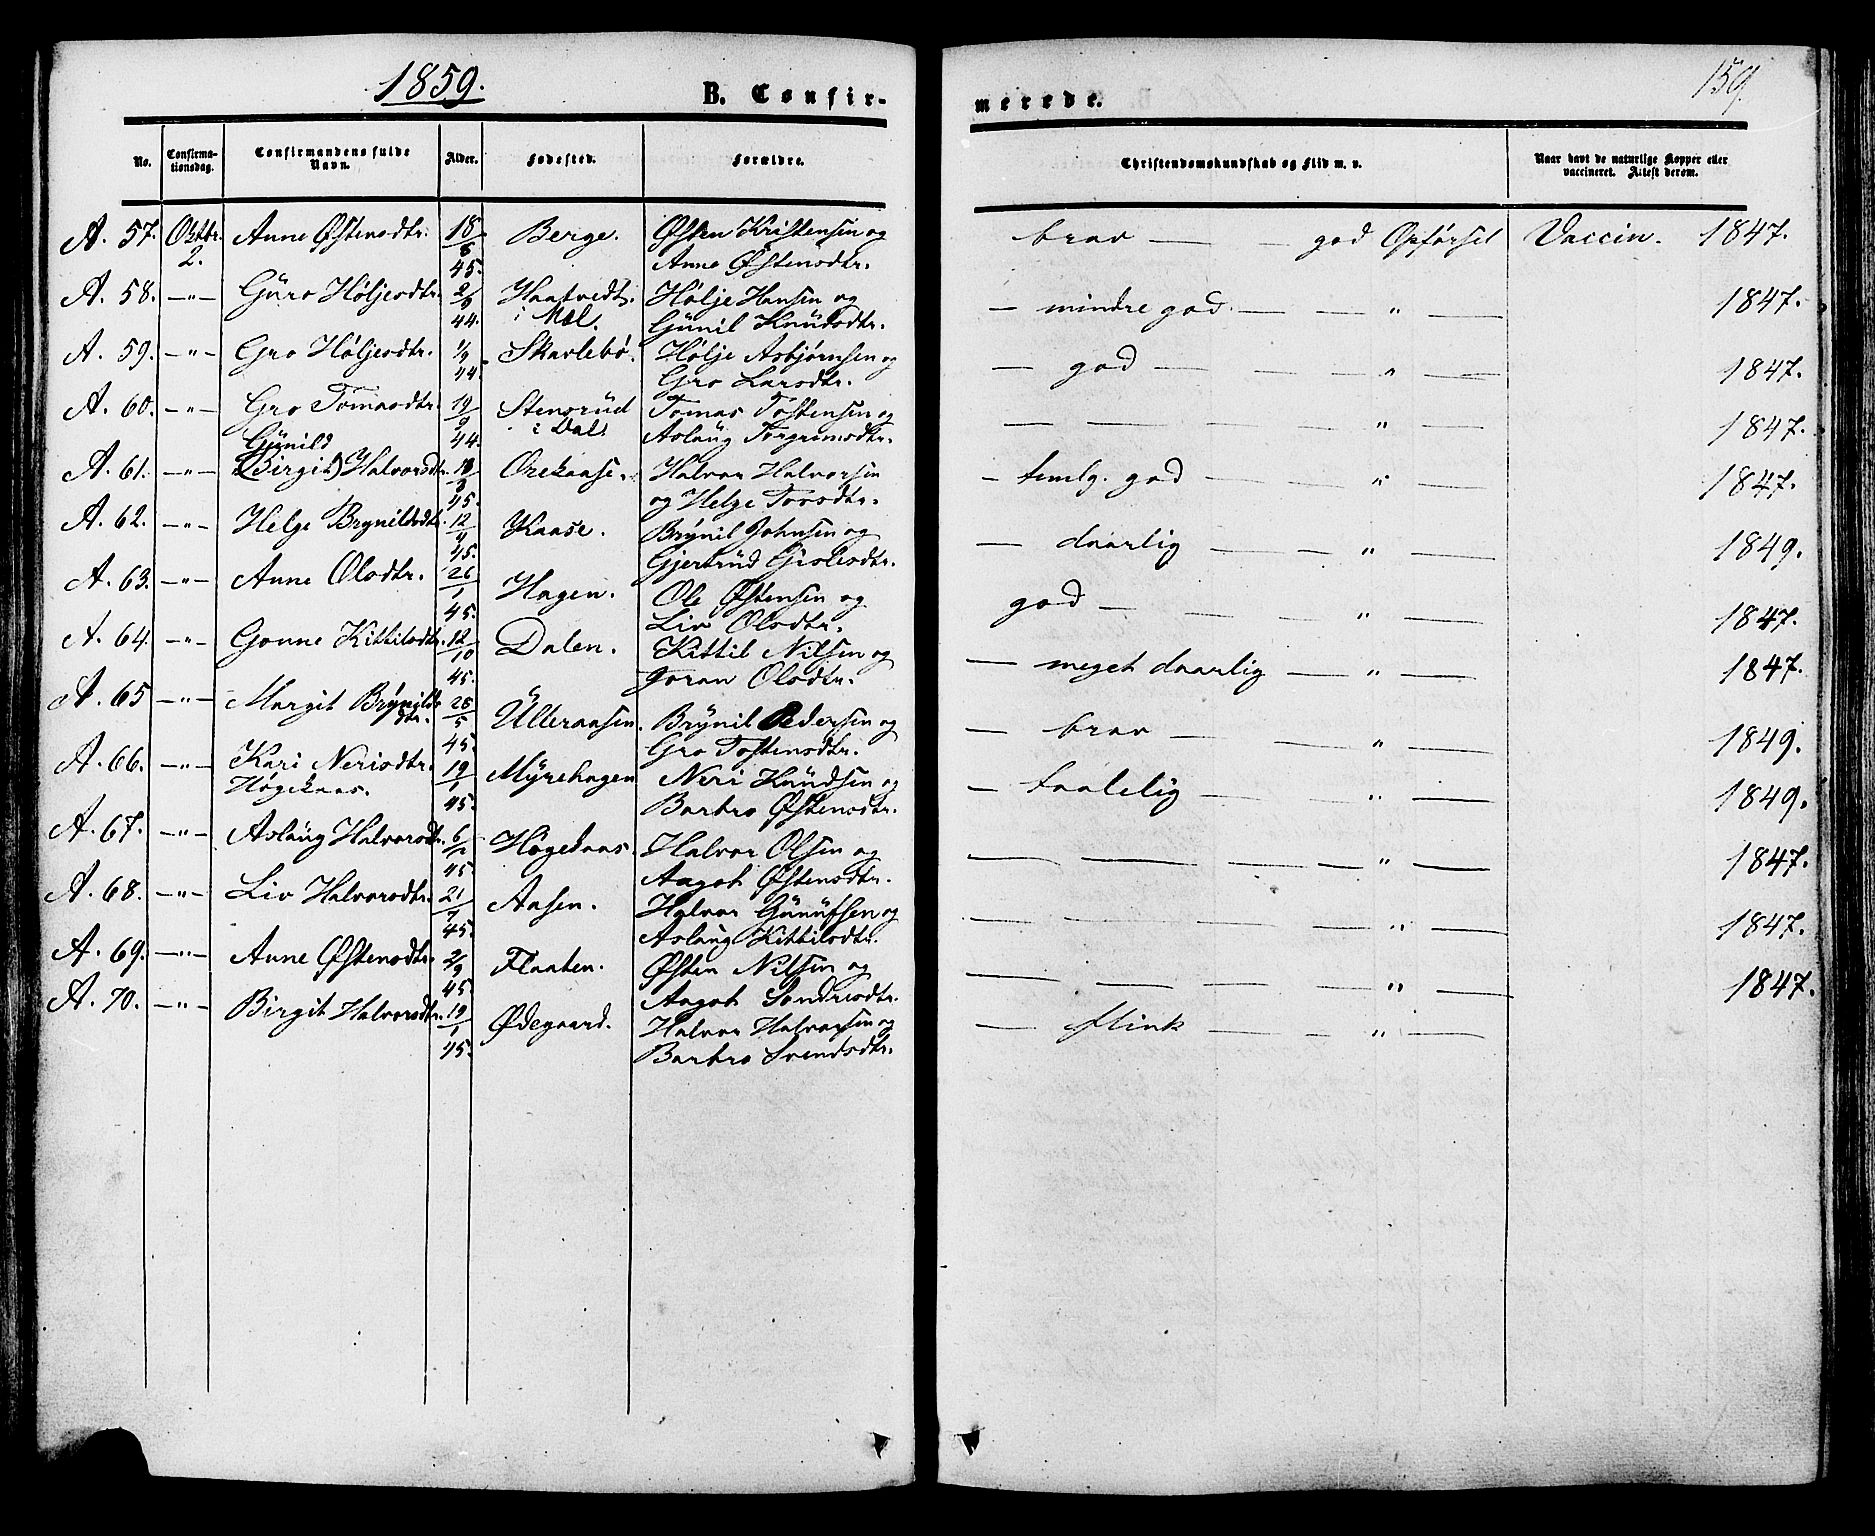 1859.
B. Confir-
merede.
159.
No.
Confirma-
tionsdag.
Confirmandens fulde
Navn.
Alder.
Fødested.
Forældre.
Christendomskundskab og Flid m. v.
Naar havt de naturlige Kopper eller
vaccineret. Attest derom.
A. 57. Oktbr. Anne Østensdtr. 18 Berge. Østen Kristensen og brav — — god Opførsel Vaccin. 1847.
2. 45. Anne Østensdtr.
A. 58. —"— Guro Høljesdtr. 2/ Haatvedt Hølje Hansen og — mindre god — — " — 1847.
44. i Mel. Gunil Knudsdtr.
A. 59. —"— Gro Høljesdtr. 1/9 Skarlebø. Hølje Asbjørnsen og — god — — " — 1847.
44. Gro Larsdtr.
A. 60. —"— Gro Tomasdtr. 19/9 Stensrud Tomas Tostensen og — — — — " — 1847.
44. i Dal. Aslaug Torgrimsdtr.
Gunild
A. 61. —"— (Birgit) Halvorsdtr. 18 Halvor Halvorsen — temlg. god — — " — 1847.
45. og Helge Torsdtr.
A. 62. —"— Helge Brynildsdtr. 12 Kaase. Brynil Johnsen og — daarlig — — " — 1849.
45. Gjertrud Gislesdtr.
A. 63. —"— Anne Olsdtr. 26/1 Hagen. Ole Østensen og god — — — " — 1847.
45. Liv Olsdtr.
A. 64. —"— Gonne Kittilsdtr. 12/10 Dalen. Kittil Nilsen og — meget daarlig — " — 1847.
45. Joran Olsdtr.
A. 65 —"— Margit Brynilds 28/5 Ulleraasen. Brynil Pedersen og — brav — — " — 1849.
dtr. 45. Gro Tostensdtr.
A. 66. —"— Kari Nerisdtr. 19/1 Myrehagen Neri Knudsen og — taalelig — — " — 1849.
Høgekaas. 45. Barbro Østensdtr.
A. 67. —"— Aslaug Halvorsdtr. 6/ Høgekaas. Halvor Olsen og — — — — " — 1847.
45. Aagot Østensdtr.
A. 68. —"— Liv Halvorsdtr. 21/7 Aasen. Halvor Gunufsen og — — — — " — 1847.
45. Aslaug Kittilsdtr.
A. 69. —"— Anne Østensdtr. 2/9 Flaaten. Østen Nilsen og — — — — " — 1847.
45 Aagot Sondresdtr.
A. 70. —"— Birgit Halvorsdtr. 19/1 Ødegaard. Halvor Halvorsen og — flink — — " —
45. Barbro Svendsdtr.